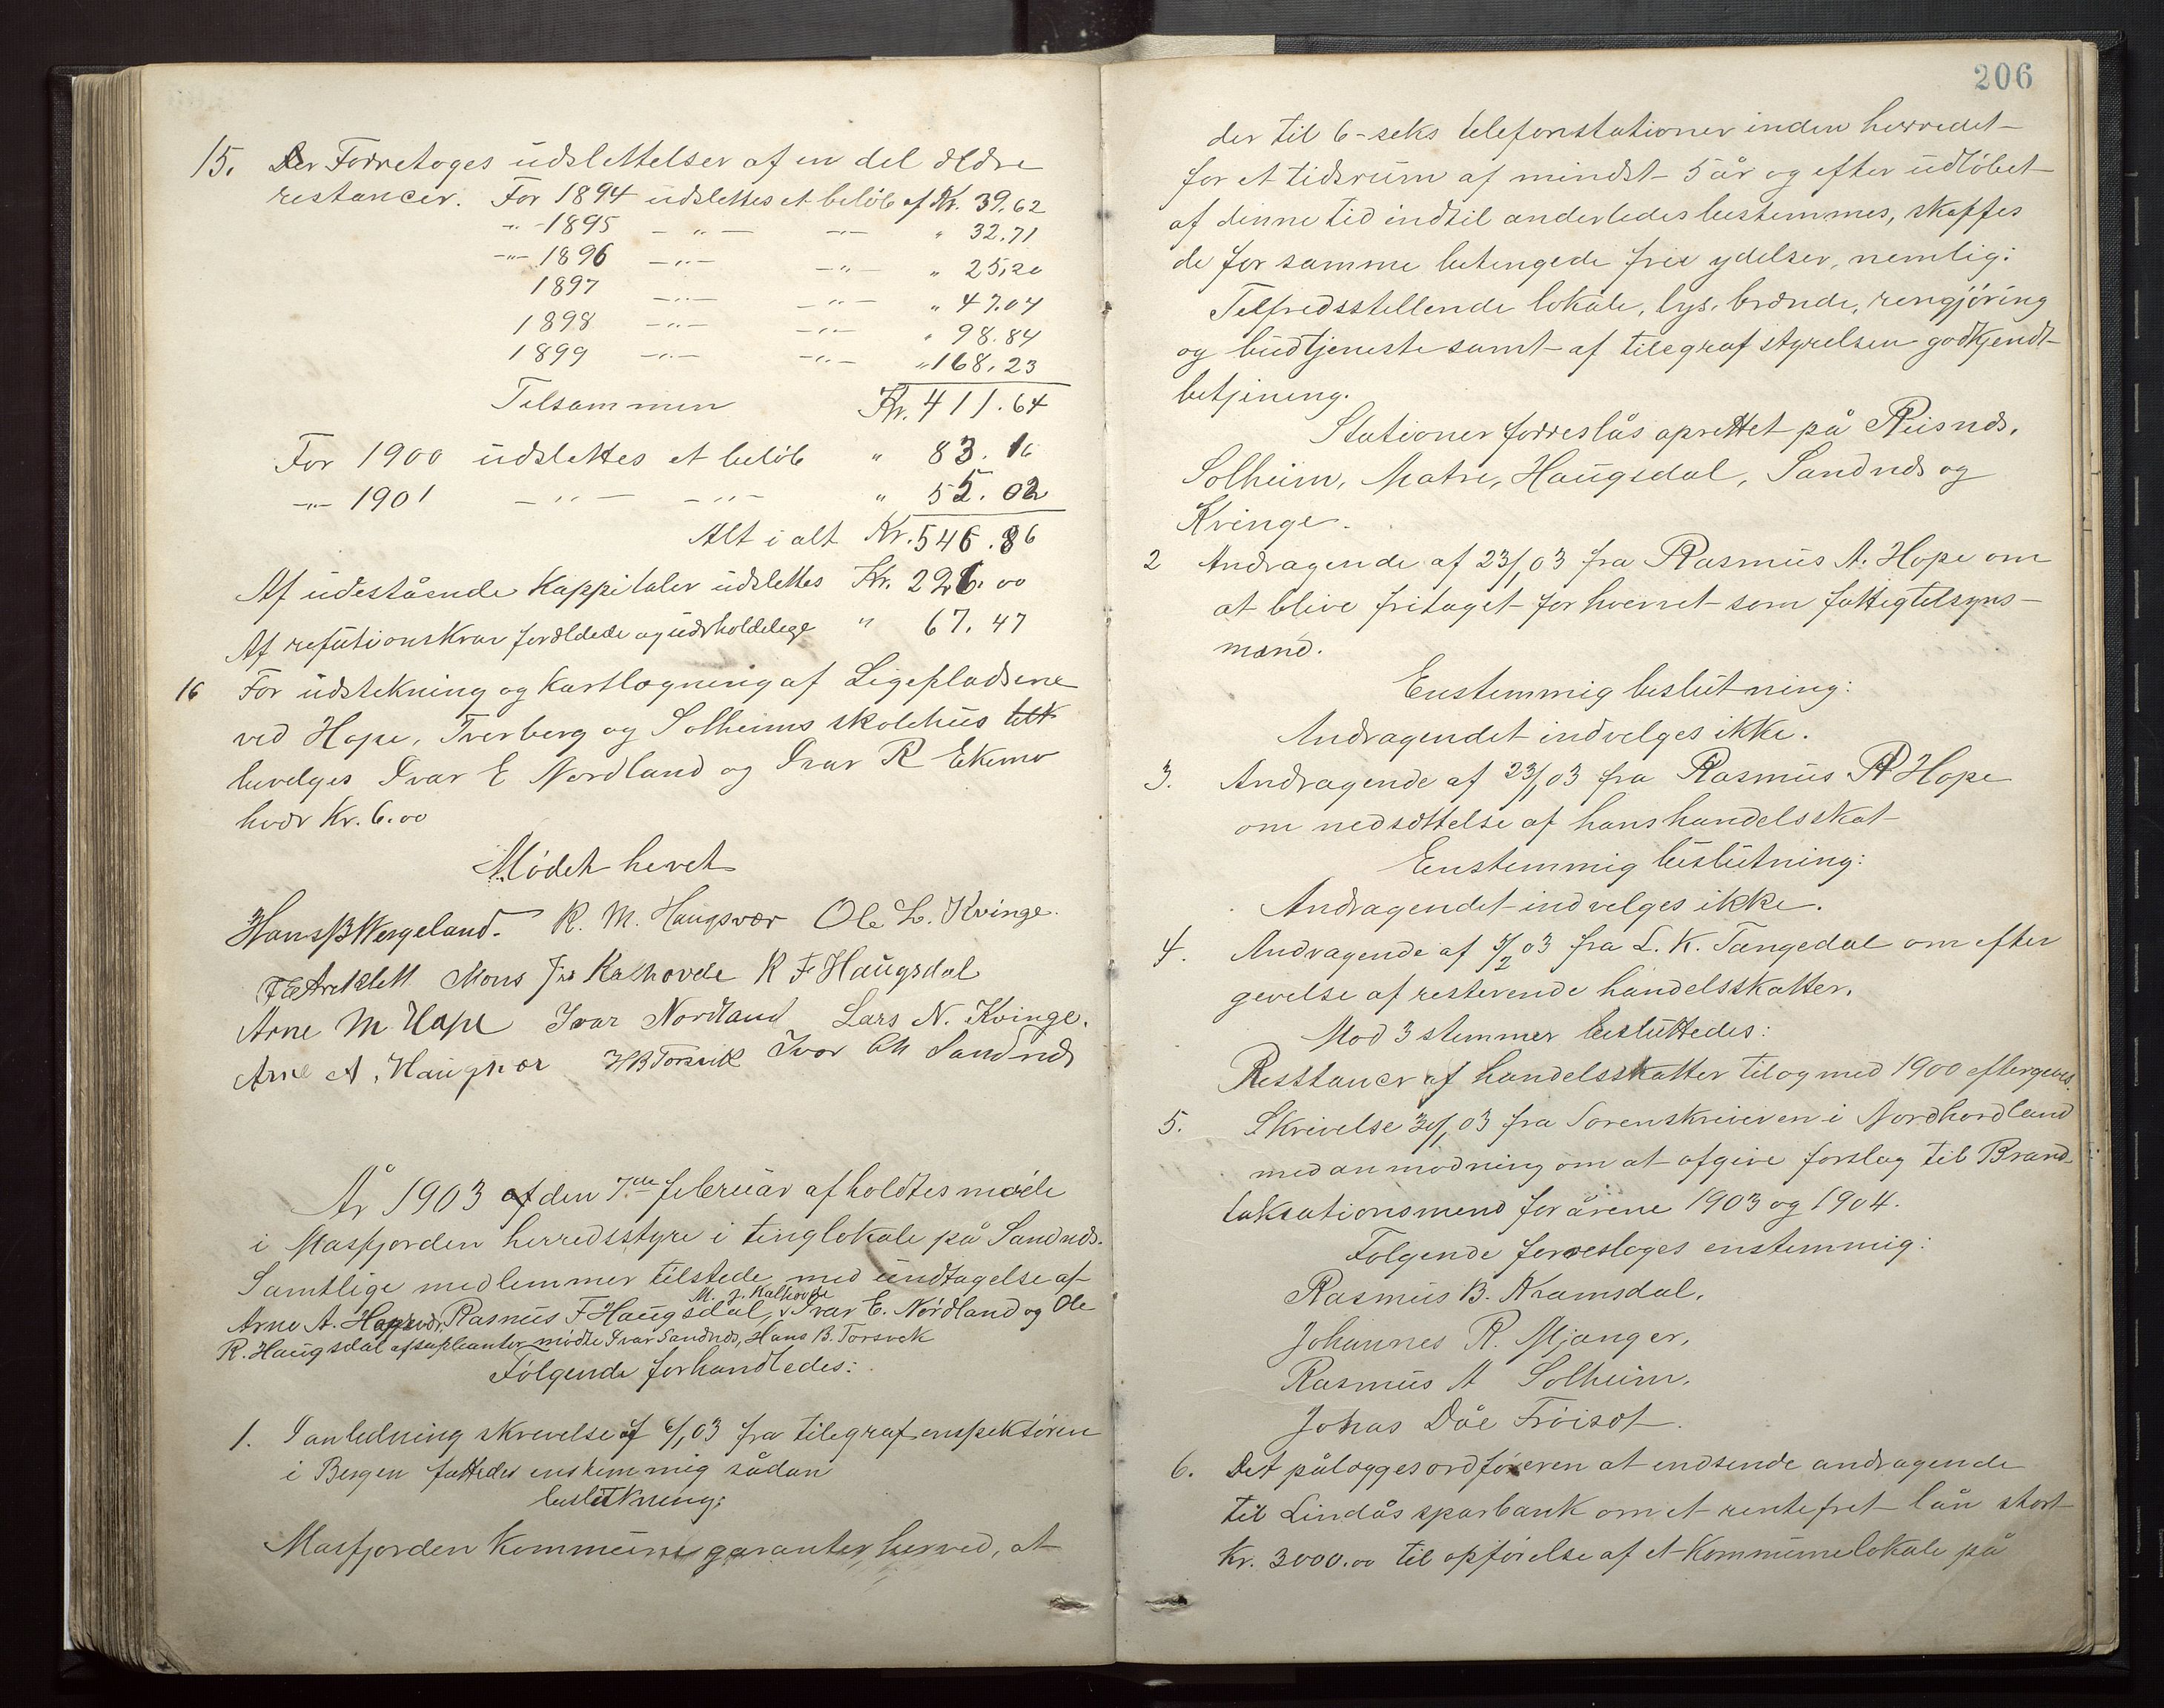 15. Der Forretoges udslettelser af en del ældre
restancer. For 1894 udslettes et beløb af Kr. 39.62
-"- 1895 -"- -"- " 32.71
-"- 1896 -"- -"- " 25,20
1897 -"- -"- " 47.04
1898 -"- -"- " 98.84
1899 -"- -"- " 168.23
Tilsammen Kr. 411.64
For 1900 udslettes et beløb " 83.16
-"- 1901 -"- -"- " 52.02
Alt i alt Kr. 546.86
Af udestående Kappitaler udslettes Kr. 226.00
Af refutionskrav forældede og uerholdelege " 67.47
16 For udstekning og kartlægning af Ligepladsene
ved Hope, Tverberg og Solheims skolehus
bevelges Ivar E Nordland og Ivar R Ekemo
hvær Kr. 6.00
Mødet hevet
Hans B Wergeland. R. M. Haugsvær Ole L. Kvinge.
Mons Kalhovde R F Haugsdal
Arne M Hope Ivar Nordland Lars N. Kvinge.
Arne A. Haugsvær HB Torsvik Ivar Sandnæs
År 1903 den 7de februar afholdtes møde
i Masfjorden herredsstyre i tinglokale på Sandnæs.
Samtlige medlemmer tilstede med undtagelse af
M. J. Kalhovde
Arne A. Haugsvær, Rasmus F Haugsdal, Ivar E. Nordland og Ole
R. Haugsdal af supleanter mødte Ivar Sandnæs, Hans B. Torsvek
Følgende forhandledes:
1. I anledning skrevelse af 6/1 03 fra telegrafenspektøren
i Bergen fattedes enstemmig sådan
beslutning:
Masfjorden Kommune garanter herved, at
206
der til 6-seks telefonstationer inden herredet
for et tidsrum af mindst 5 år og efter udløbet
af denne tid indtil anderledes bestemmes, skaffes
de for samme betengede frie ydelser, nemlig:
Telfredsstellende lokale, lys, brænde, rengjøring
og budtjeneste samt af telegrafstyrelsen godkjendt
betjening.
Stationer forreslås oprettet på Reisnæs,
Solheim, Matre, Haugsdal, Sandnæs og
Kvinge.
2 Andragende af 23/1 03 fra Rasmus A. Hope om
at blive fritaget for hvervet som fattigtelsyns-
mænd.
Enstemmig beslutning:
Andragendet indvelges ikke.
3. Andragende af 23/1 03 fra Rasmus R Hope
om nedsættelse af hans handelsskat
Enstemmig beslutning:
Andragendet indvelges ikke.
4. Andragende af /2 03 fra L. K. Tangedal om efter
gevelse af resterende handelsskatter.
Mod 3 stemmer besluttedes:
Resttancer af handelsskatter tilogmed 1900 eftergeves.
5. Skrivelse 30/1 03 fra Sorenskriveren i Nordhordland
med anmodning om at afgive forslag til Brand-
taksationsmend for årene 1903 og 1904.
Følgende forresloges enstemmig:
Rasmus B. Kramsdal,
Johannes R. Mjanger,
Rasmus A Solheim,
Johas Dåe Frøiset.
6. Det pålægges ordføreren at endsende andragende
til Lindås sparbank om et rentefret lån stort
Kr. 3000.00 til opførelse af et Kommunelokale på